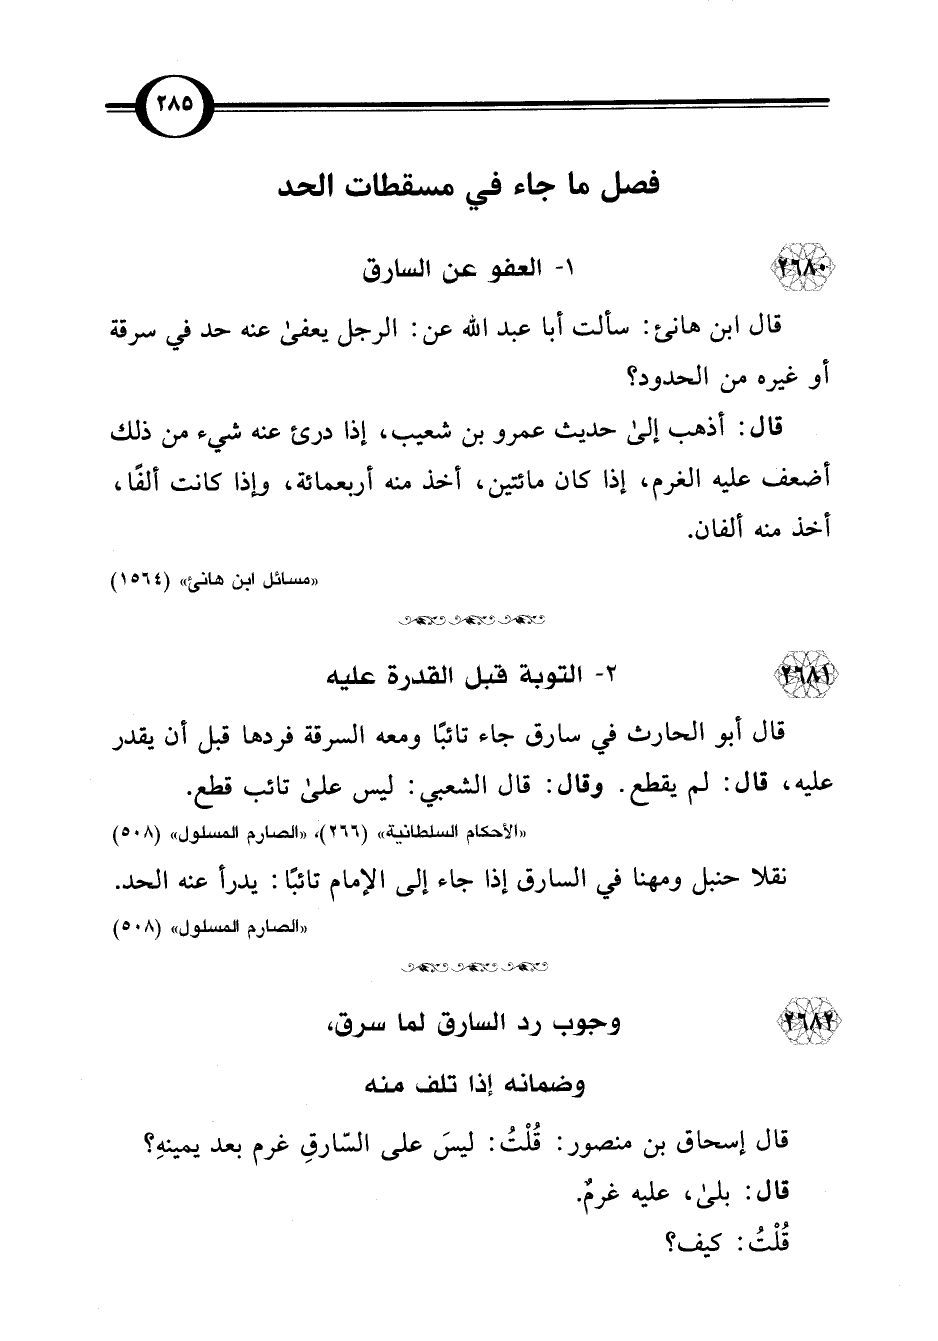 ٢٨٥
فصل ما جاء في مسقطات الحد
٢٦٨٠
١- العفو عن السارق
قال ابن هانئ: سألت أبا عبد الله عن: الرجل يعفىٰ عنه حد في سرقة
أو غيره من الحدود؟
قال: أذهب إلىٰ حديث عمرو بن شعيب، إذا درئ عنه شيء من ذلك
أضعف عليه الغرم، إذا كان مائتين، أخذ منه أربعمائة، وإذا كانت ألفًا،
أخذ منه ألفان.
«مسائل ابن هانئ» (١٥٦٤)
٢٦٨١
٢- التوبة قبل القدرة عليه
قال أبو الحارث في سارق جاء تائبًا ومعه السرقة فردها قبل أن يقدر
عليه، قال: لم يقطع. وقال: قال الشعبي: ليس علىٰ تائب قطع.
«الأحكام السلطانية» (٢٦٦)، «الصارم المسلول» (٥٠٨)
نقلا حنبل ومهنا في السارق إذا جاء إلى الإمام تائبًا: يدرأ عنه الحد.
«الصارم المسلول» (٥٠٨)
٢٦٨٢
وجوب رد السارق لما سرق،
وضمانه إذا تلف منه
قال إسحاق بن منصور: قُلْتُ: ليسَ على السّارقِ غرم بعد يمينهِ؟
قال: بلىٰ، عليه غرمٌ.
قُلْتُ: كيف؟